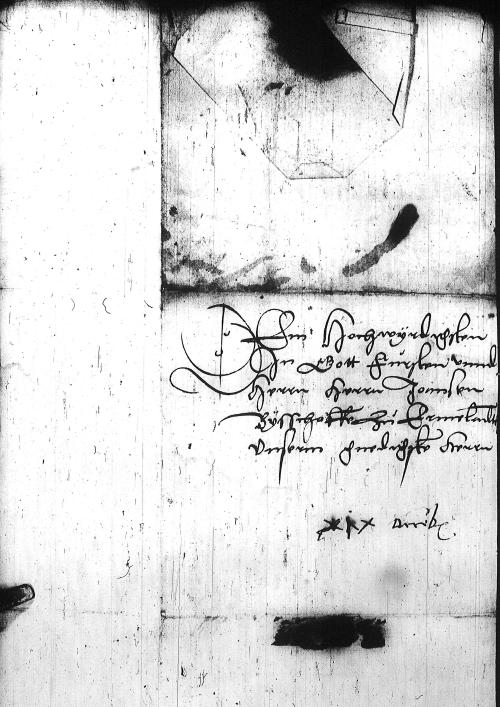 Dem Hochwyrdigsten
In Gott Fürsten vnnd
Herrn Herrn Joansen
Bÿsschoffe zu Ermelandt
Vnserm gnedigste Herrn
xix